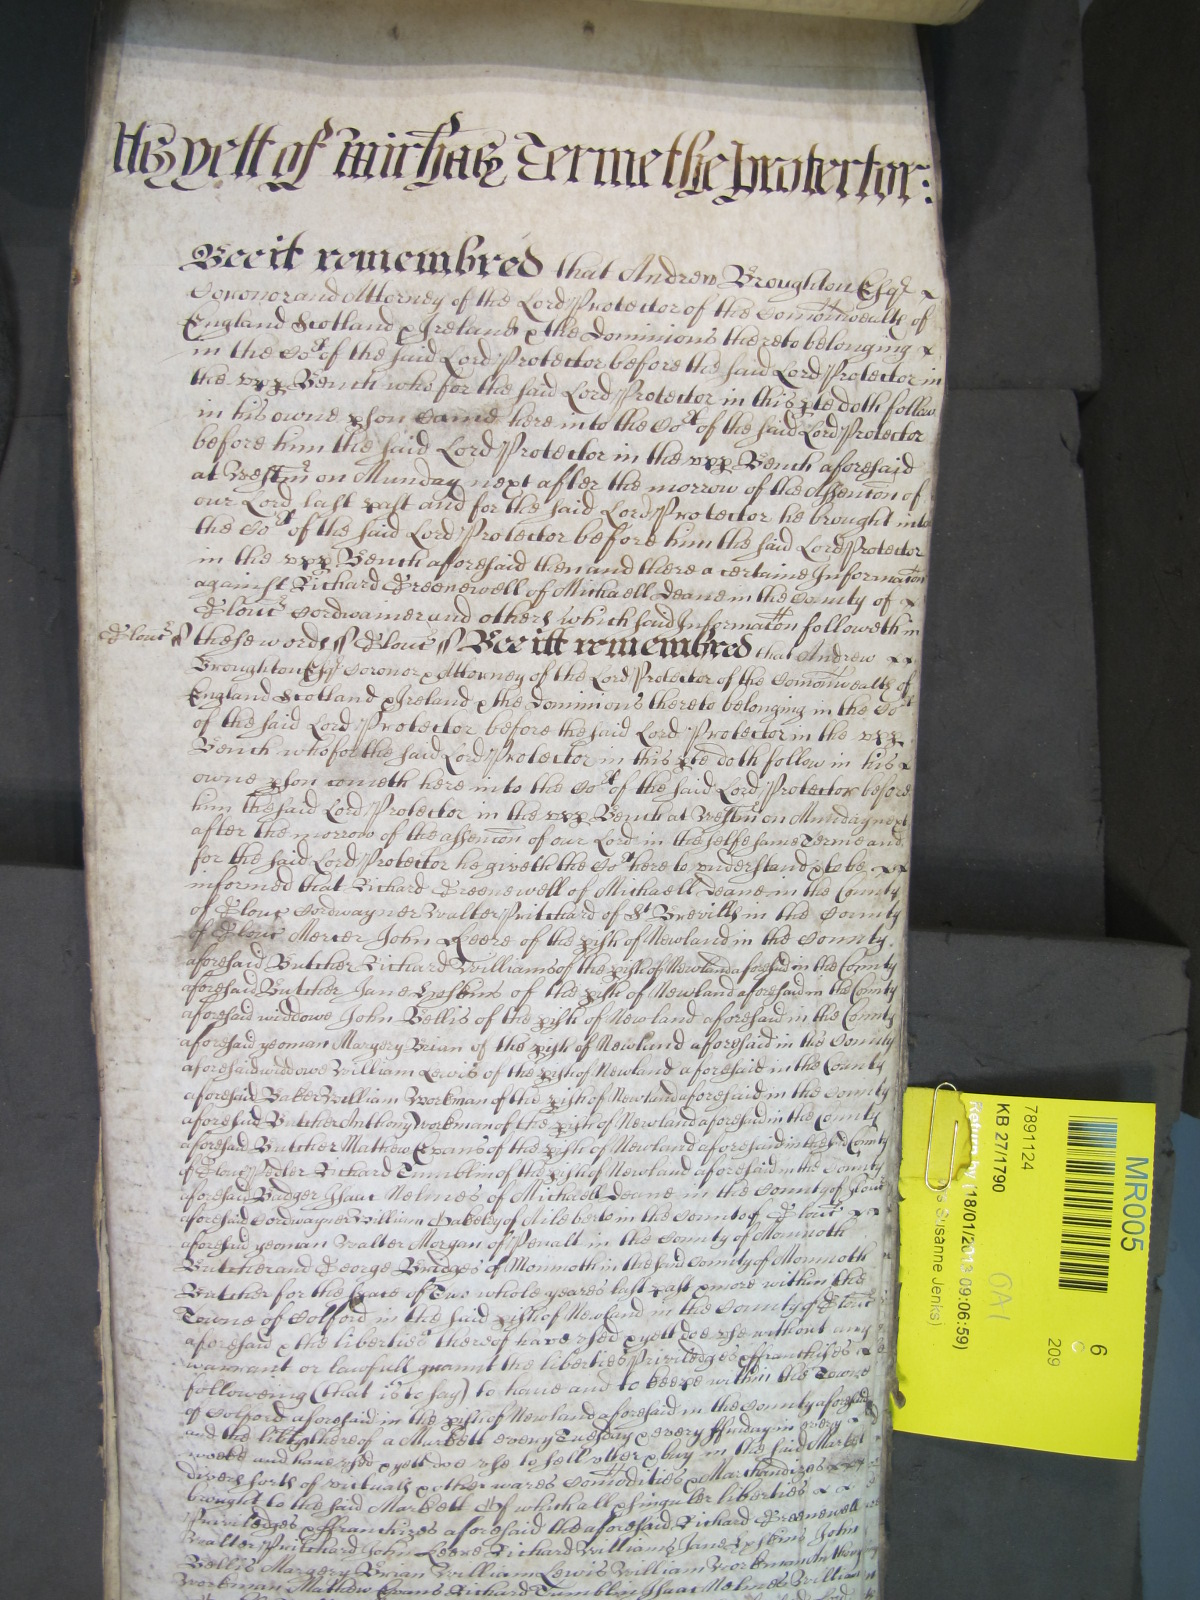 As yett of Michas Terme the Protector:
Bee it remembred that Andrew Broughton Esqr
Coronor and Attorney of the Lord Protector of the Comonwealth of
England Scotland & Ireland & the Dominions thereto belonging
in the Cort of the said Lord Protector before the said Lord Protector in
the upp Bench who for the said Lord Protector in this pte doth follow
in his owne pson Came here into the Cort of the said Lord Protector
before him the said Lord Protector in the upp Bench aforesaid
at Westmr on Munday next after the morrow of the Assencon of
our Lord last past and for the said Lord Protector he brought into
the Cort of the said Lord Protector before him the said Lord Protector
in the upp Bench aforesaid then and there a certaine Informacon
against Richard Greenewell of Michaell Deane in the County of
Glouc Cordwainer and others which said Informacon followeth in
Glouc ss these words ss Glouc ss Bee itt remembred that Andrew
Broughton Esqr Coronor & Attorney of the Lord Protector of the Comonwealth of
England Scotland & Ireland & the Dominions thereto belonging in the Cort
of the said Lord Protector before the said Lord Protector in the upp
Bench who for the said Lord Protector in this pte doth follow in his
owne pson cometh here into the Cort of the said Lord Protector before
him the said Lord Protector in the upp Bench at Westmr on Munday next
after the morrow of the assencon of our Lord in the selfe same Terme and
for the said Lord Protector he giveth the Cort here to understand & to be
informed that Richard Greenewell of Michaell Deane in the County
of Glouc Cordwayner Walter Pritchard of St Brevills in the County
of Glouc Mercer John Keere of the pish of Newland in the County
aforesaid Butcher Richard Williams of the pish of Newland aforesaid in the County
aforesaid Butcher Jane of the pish of Newland aforesaid in the County
aforesaid widdowe John Bellis of the pish of Newland aforesaid in the County
aforesaid yeoman Margery Brian of the pish of Newland aforesaid in the County
aforesaid widdowe William Lewis of the pish of Newland aforesaid in the County
aforesaid Baker William Workman of the pish of Newland aforesaid in the County
aforesaid Butcher Anthony Workman of the pish of Newland aforesaid in the County
aforesaid Butcher Mathew Evans of the pish of Newland aforesaid in the said County
of Glouc Richard Tumblin of the pish of Newland aforesaid in the County
aforesaid Badger Isaac Melmes of Michaell Deane in the County of Glouc
aforesaid Cordwayner William of in the County of Glouc
aforesaid yeoman Walter Morgan of Penalt in the County of Monmoth
Butcher and George Bridges of Monmoth in the said County of Monmoth
Butcher for the space of Two whole yeares last past & more within the
Towne of Colford in the said pish of Newland in the County of Glouc
aforesaid & the liberties thereof have used & yett doe use without any
warrant or lawfull graunt the liberties Priviledges & ffranchises
followeing (that is to say) to have and to keepe within the Towne
of Colford aforesaid in the pish of Newland aforesaid in the County aforesaid
and the libtyes thereof a Markett every Tuesday & every ffryday in every
weeke and have used & yett doe use to sell utter & buy in the said Markett
divers sorts of victualls & other wares Comodities & Marchandizes
brought to the said Markett Of which all & singuler liberties
Priviledges & ffranchizes aforesaid the aforesaid Richard Greenewell
Walter Pritchard John Keere Richard Williams Jane John
Bellis Margery Brian William Lewis William Workman Anthony
Workman Mathew Evans Richard Tumblin Isaac Melmes William
MR005
6
209
7891124
KB 27/1790
Return by (18/01/2013 09:06:59)
Susanne Jenks)